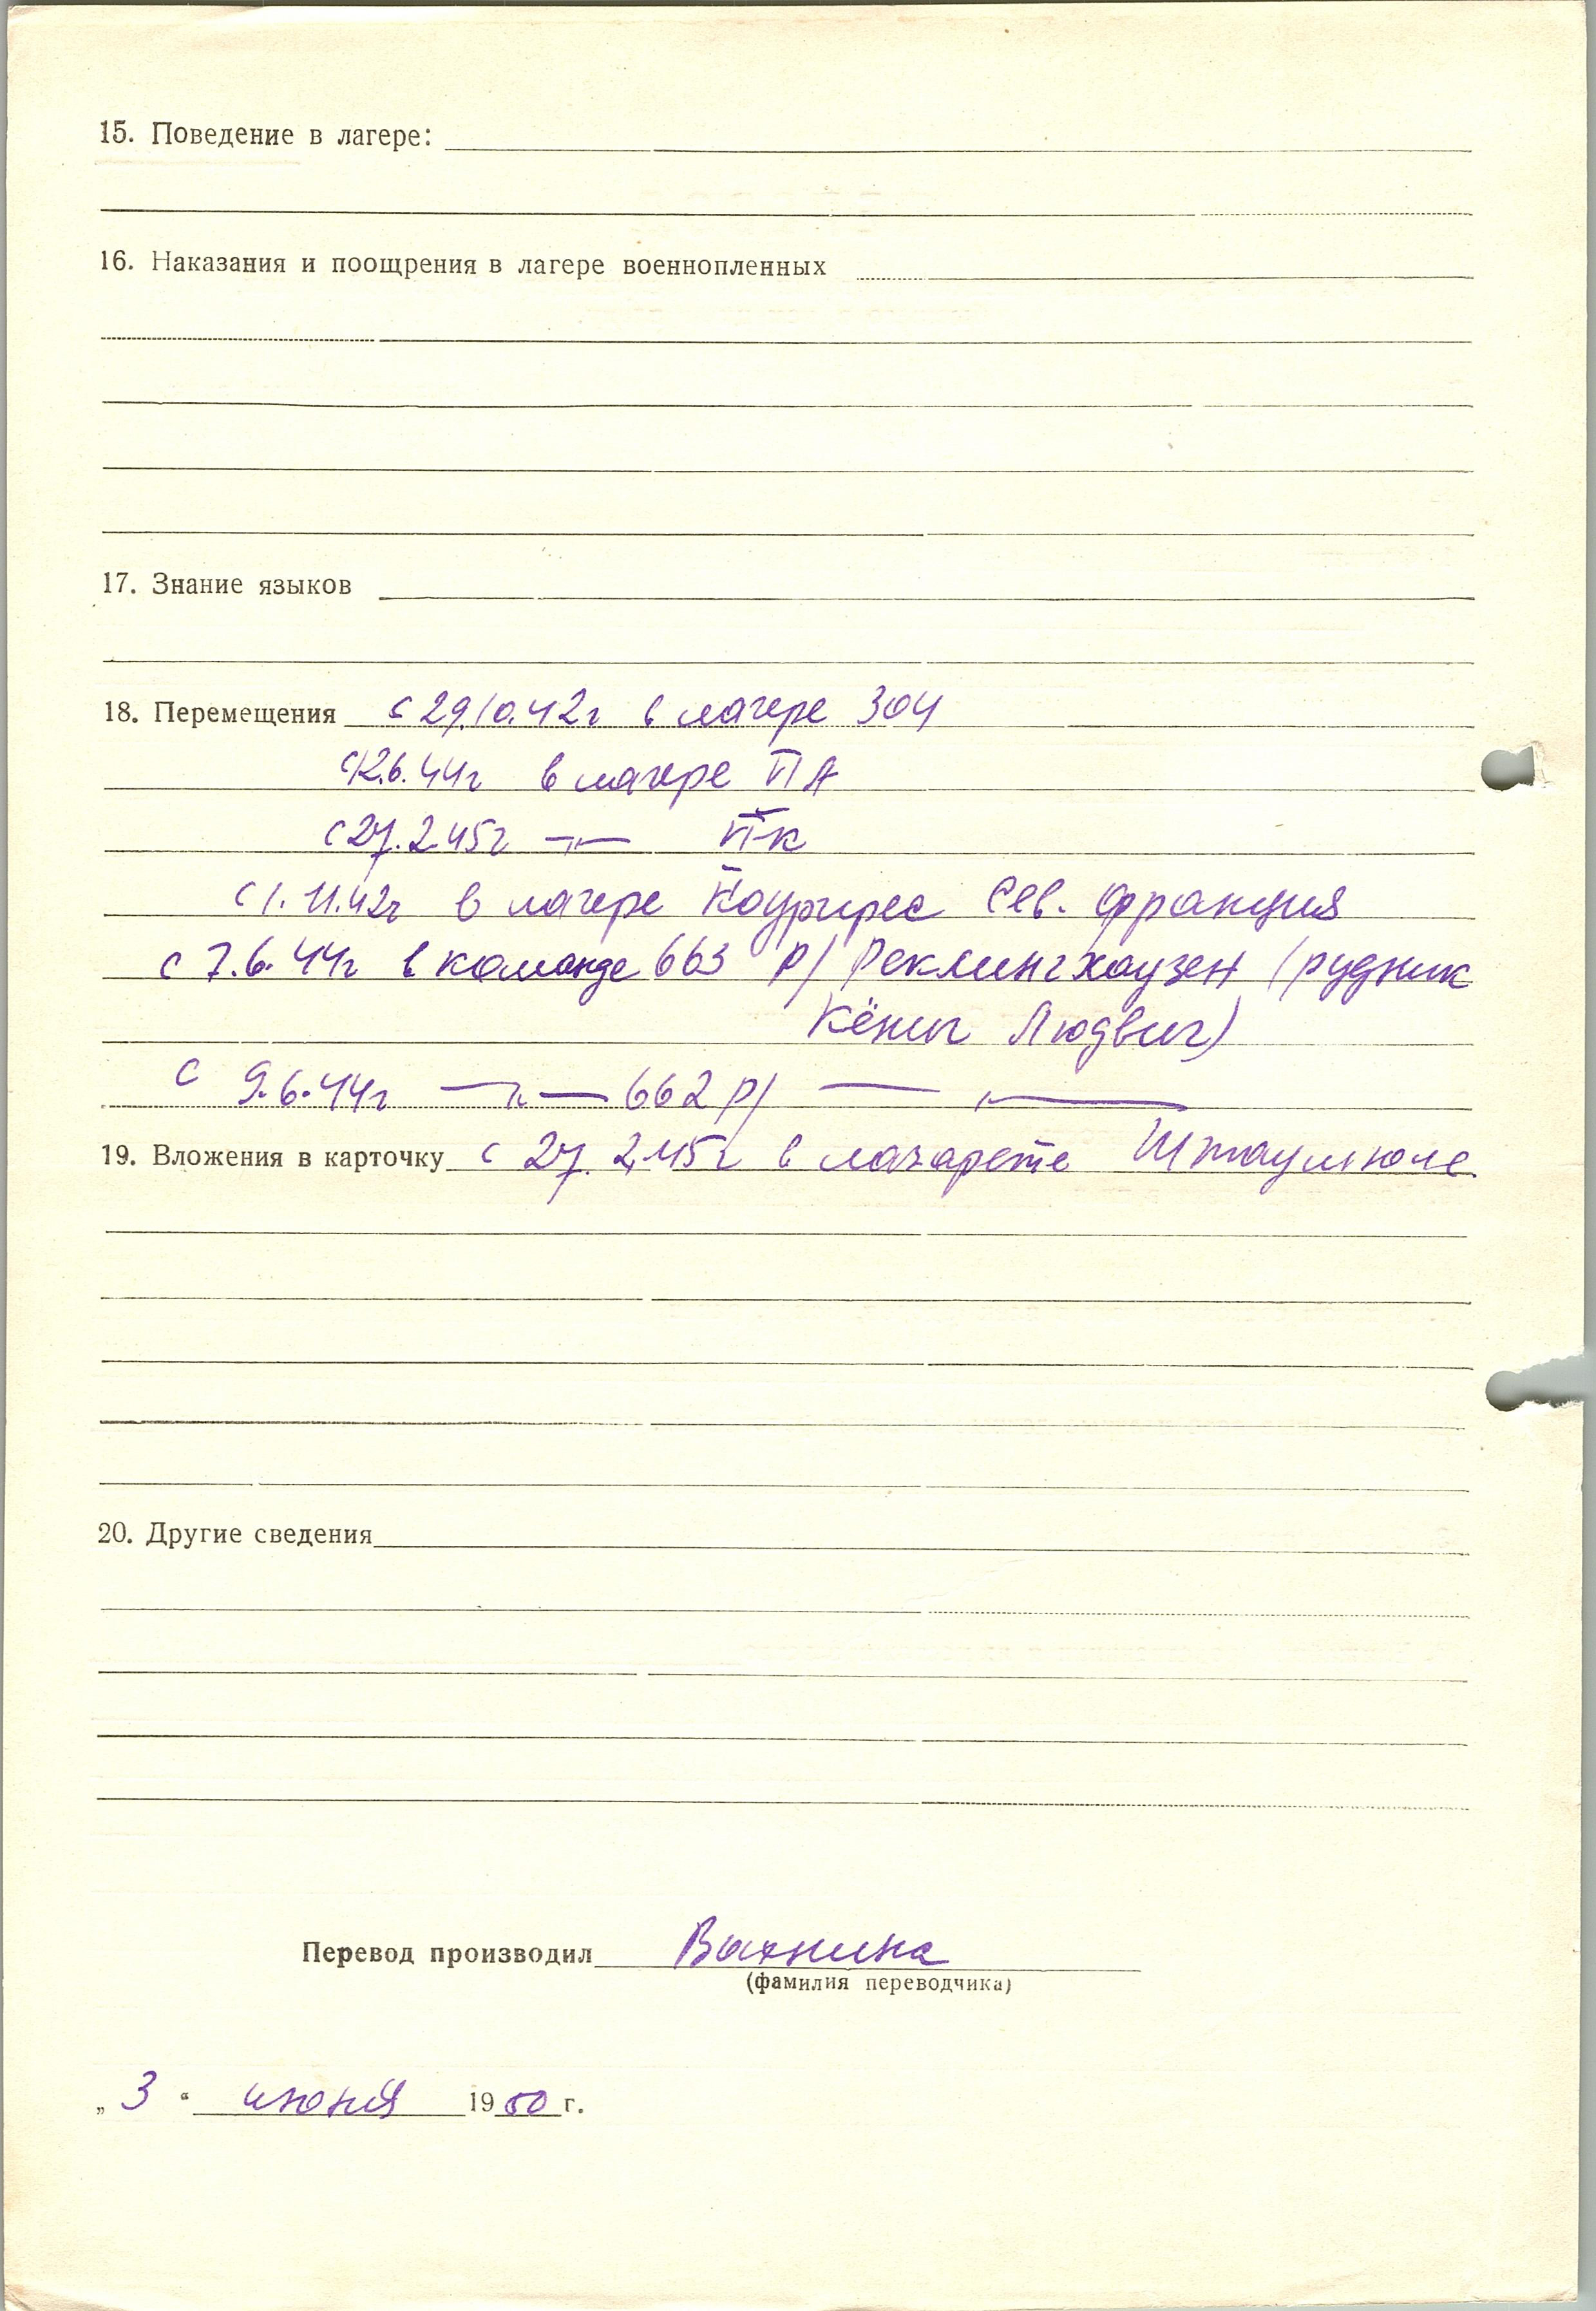 15. Поведение в лагере:
16. Наказания и поощрения в лагере военнопленных
17. Знание языков
18. Перемещения с 29.10.42г в лагере 304
с 2.6.44г в лагере VI A
с 27.2.45г —„— VI K
с 1.11.42г в лагере Сев. Франция
с 7.6.44г в команде 663 Р/ Реклингхаузен (рудник
Кёниг Людвиг)
с 9.6.44г —„— 662 Р/ —„—
19. Вложения в карточку с 27.2.45г в лазарете Штаумюле
20. Другие сведения
Перевод производил
(фамилия переводчика)
„3“ июня 1950 г.